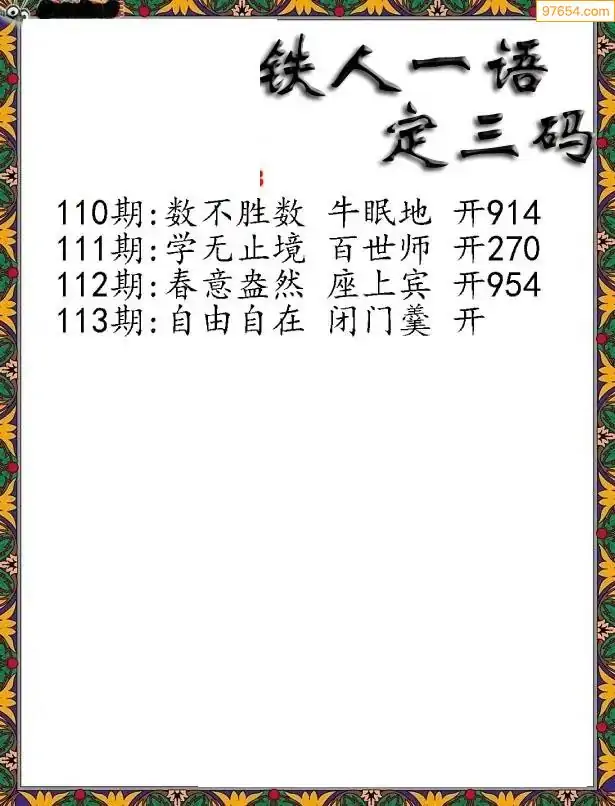 97654.com
铁人一语
定三码
110期:数不胜数 牛眠地 开914
111期:学无止境 百世师 开270
112期:春意盎然 座上宾 开954
113期:自由自在 闭门羹 开